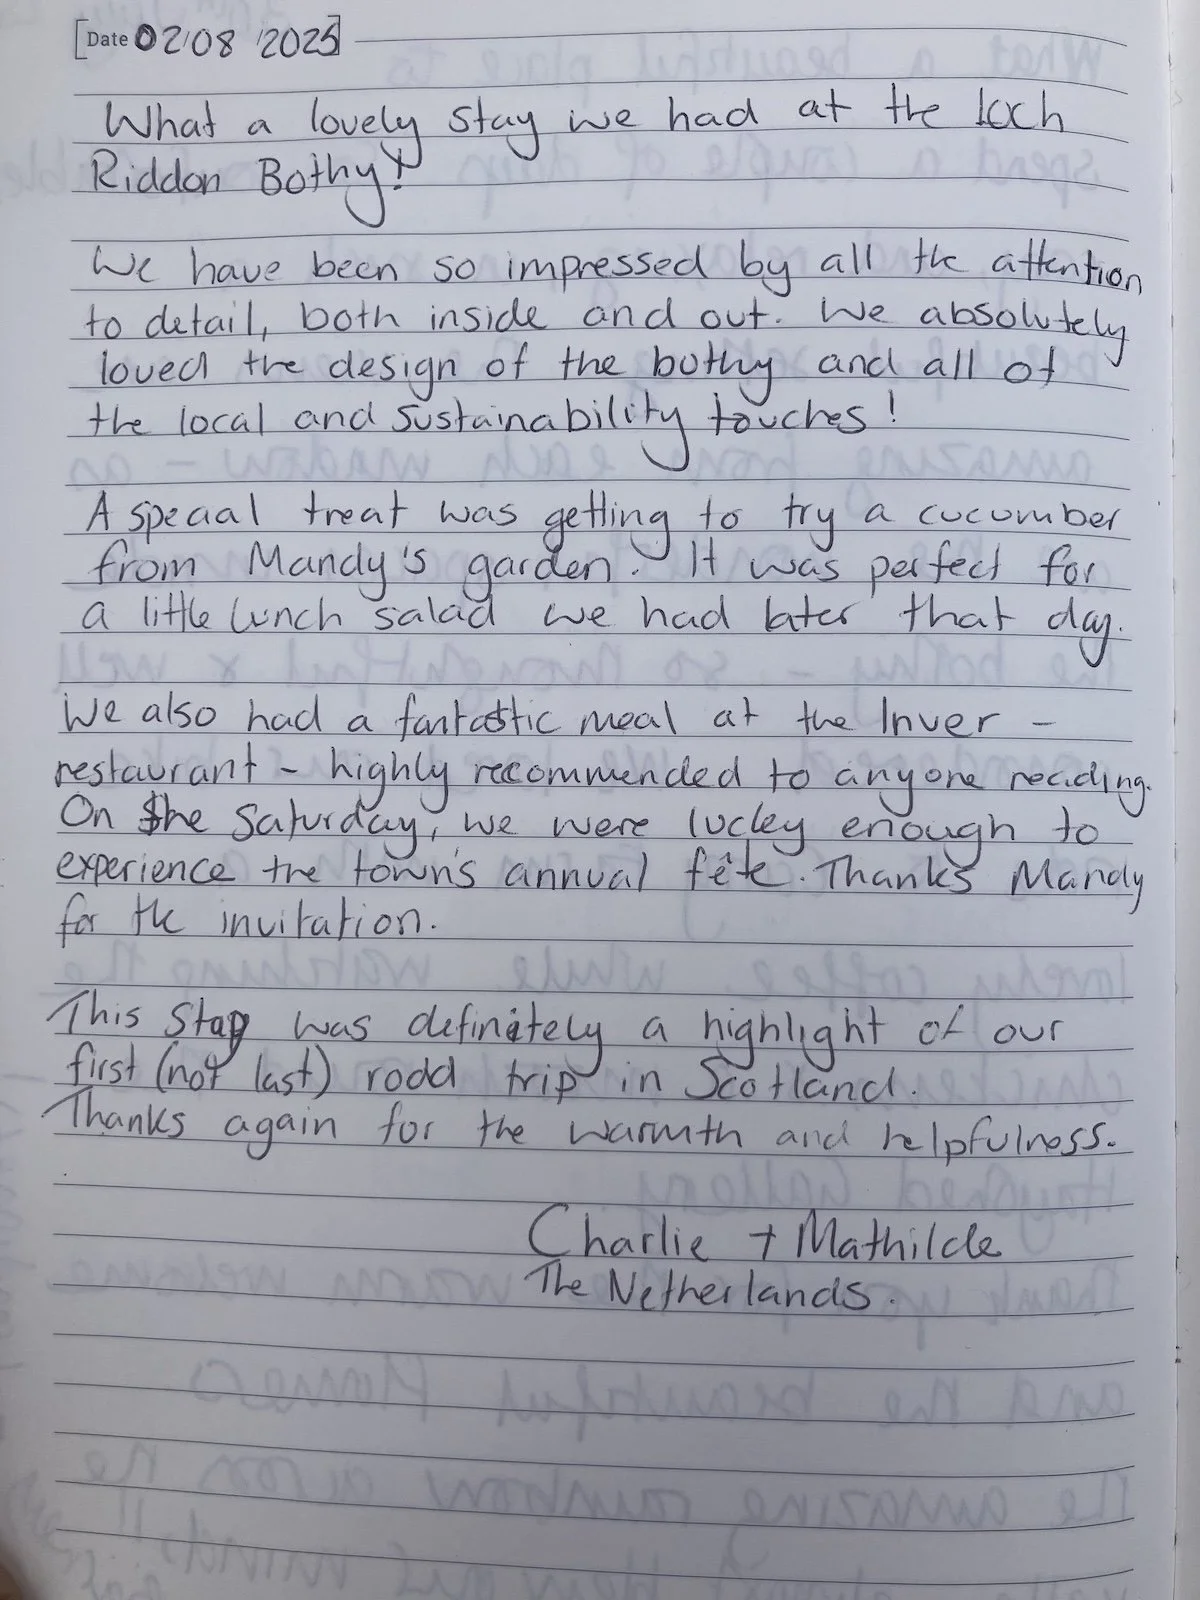 Date 02/08 2025
What a lovely stay we had at the Loch
Riddon Bothy!
We have been so impressed by all the attention
to detail, both inside and out. We absolutely
loved the design of the bothy and all of
the local and sustainability touches!
A special treat was getting to try a cucumber
from Mandy's garden. It was perfect for
a little lunch salad we had later that day.
We also had a fantastic meal at the Inver -
restaurant - highly recommended to anyone reading.
On the Saturday, we were lucky enough to
experience the town's annual fête. Thanks Mandy
for the invitation.
This stay was definitely a highlight of our
first (not last) road trip in Scotland.
Thanks again for the warmth and helpfulness.
Charlie + Mathilde
The Netherlands.